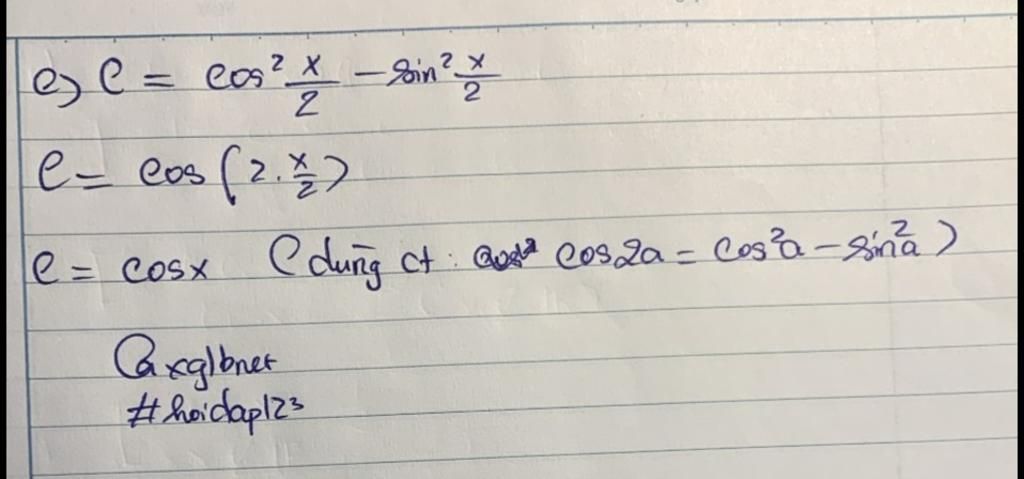 e) C = cos² x/2 - sin² x/2
C = cos (2. x/2)
C = cosx (dùng ct: cos2a = cos²a - sin²a)
@xg1bnet
#hoidap123